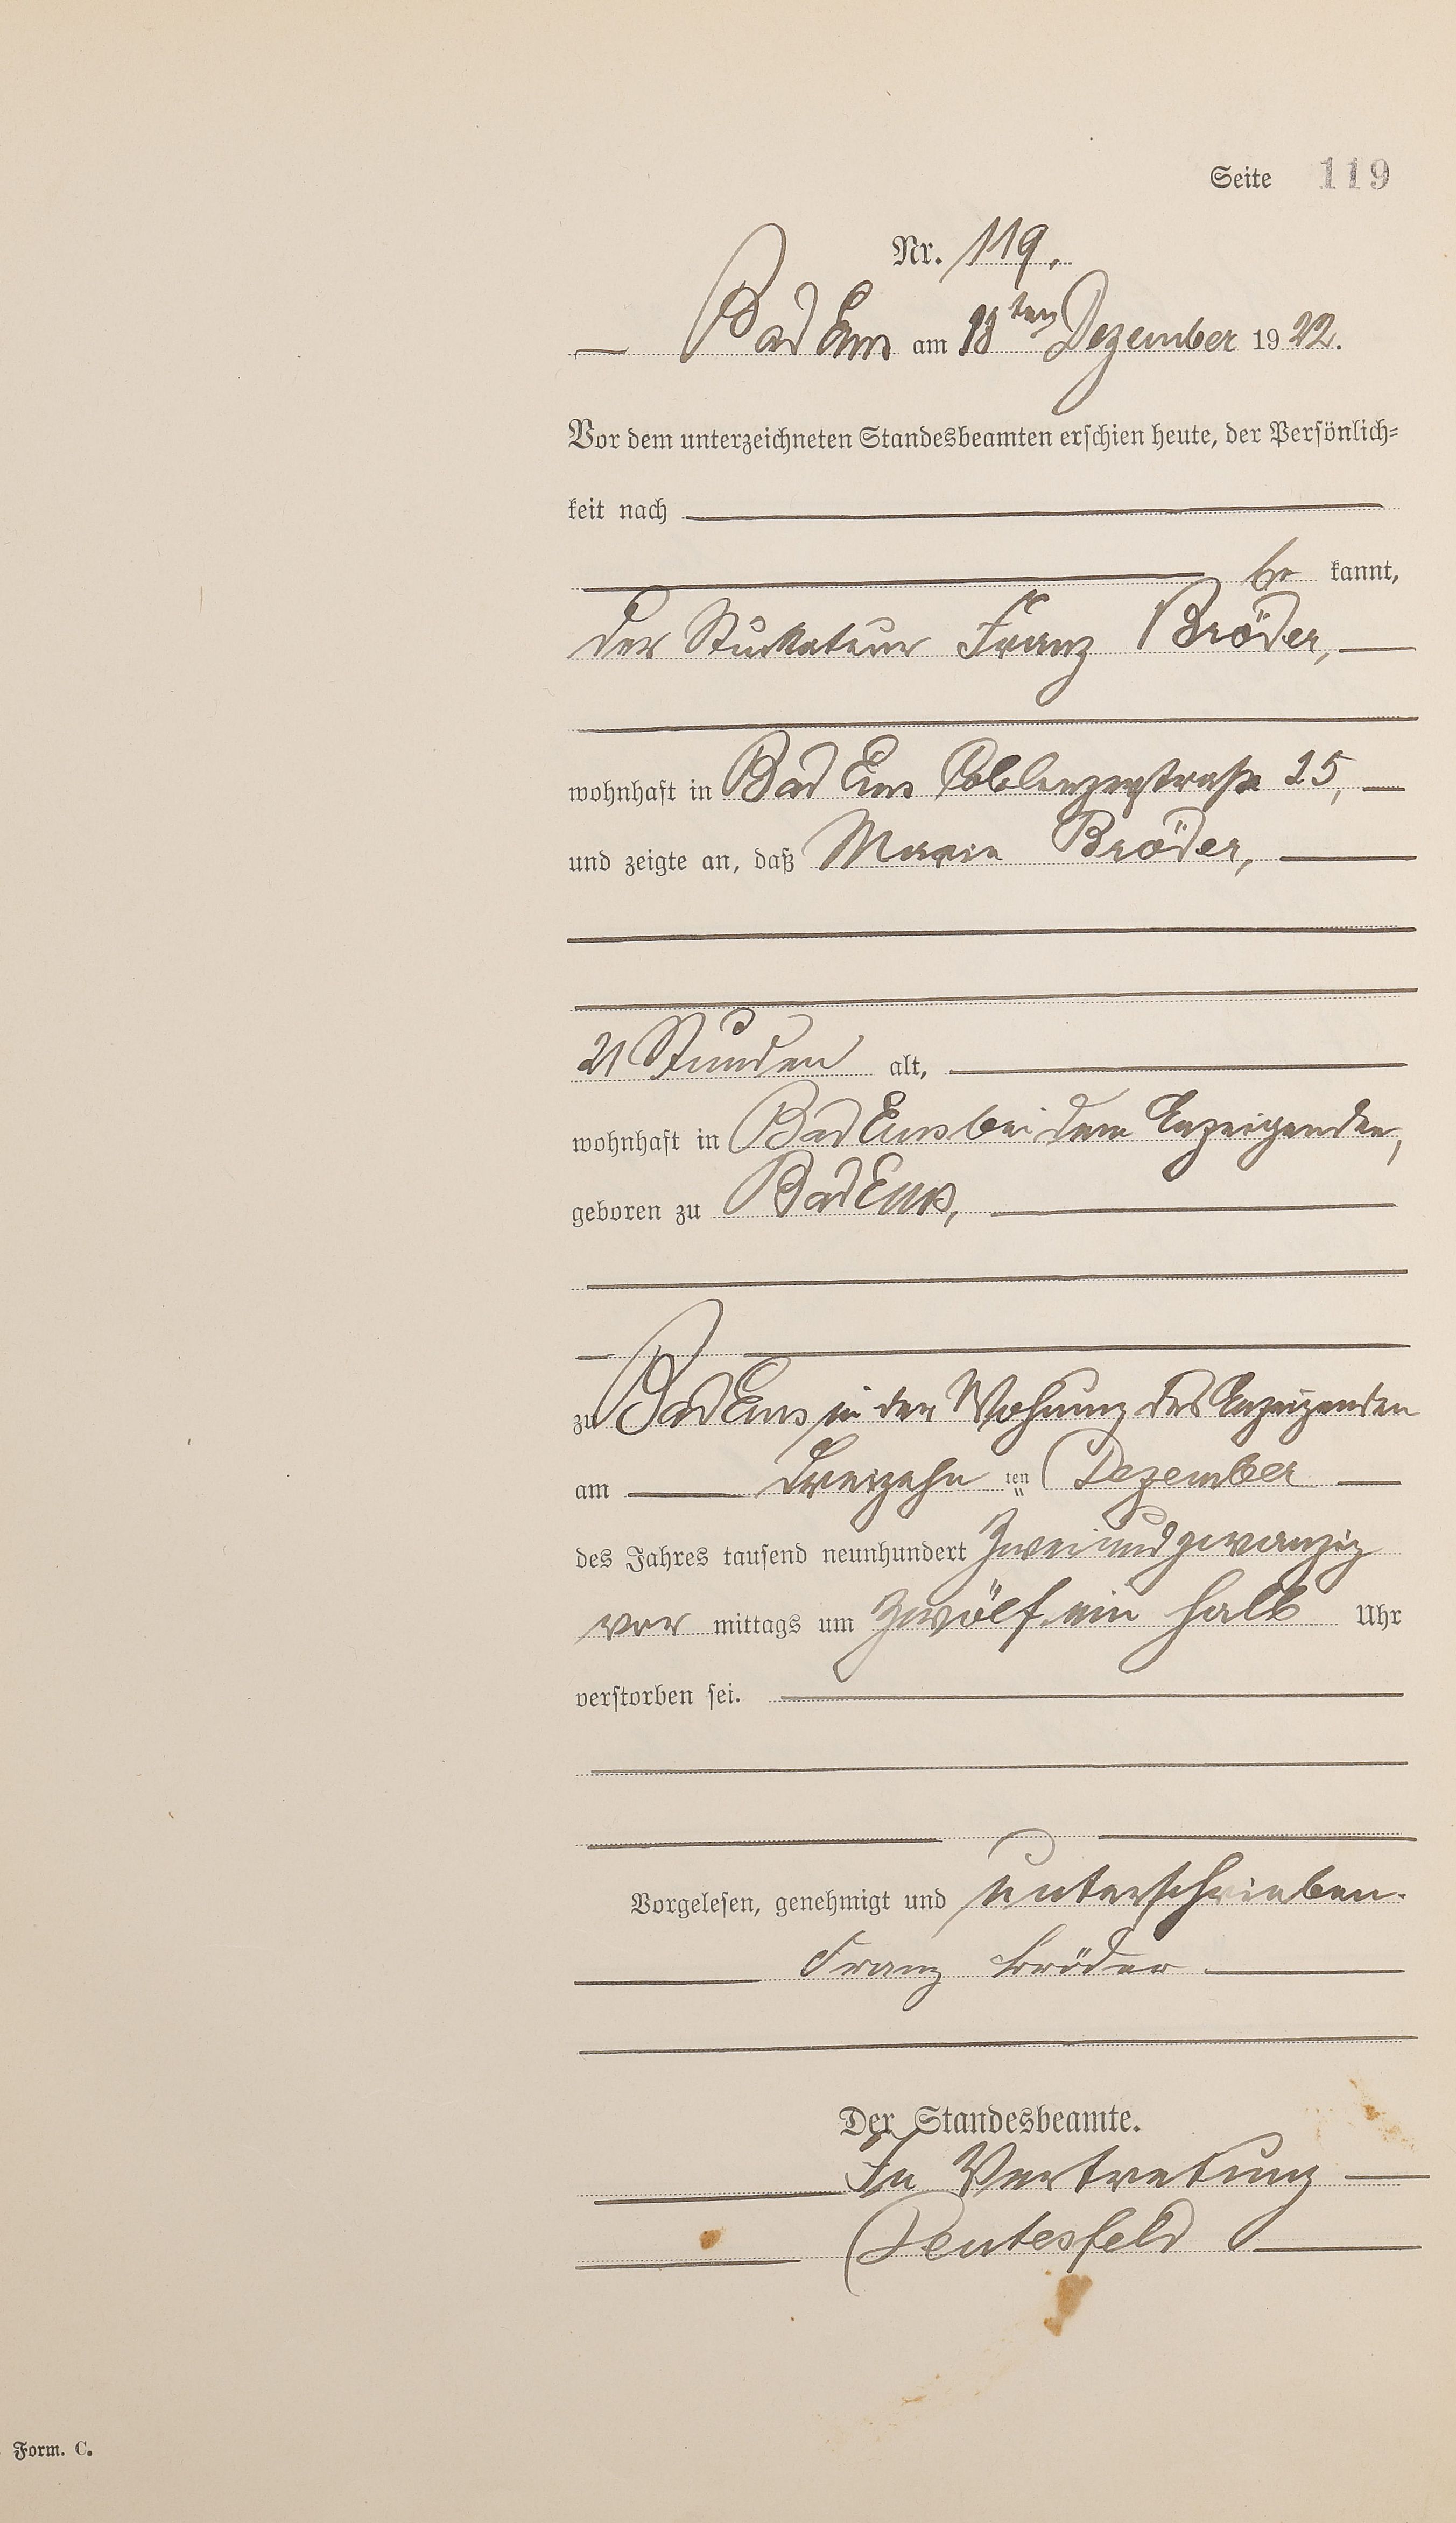 Seite 119
Nr. 119.
Bad Ems am 18ten Dezember 1922.
Vor dem unterzeichneten Standesbeamten erschien heute, der Persönlich-
keit nach
be kannt,
der Stuckateur Franz Bröder,
wohnhaft in Bad Ems Coblenzerstraße 25,
und zeigte an, daß Maria Bröder,
21 Stunden alt,
wohnhaft in Bad Ems bei dem Anzeigenden,
geboren zu Bad Ems,
zu Bad Ems in der Wohnung des Anzeigenden
am dreizehn ten Dezember
des Jahres tausend neunhundert zweiundzwanzig
vor mittags um zwölf ein halb Uhr
verstorben sei.
Vorgelesen, genehmigt und unterschrieben.
Franz Bröder
Der Standesbeamte.
In Vertretung
Deutesfeld
Form. C.